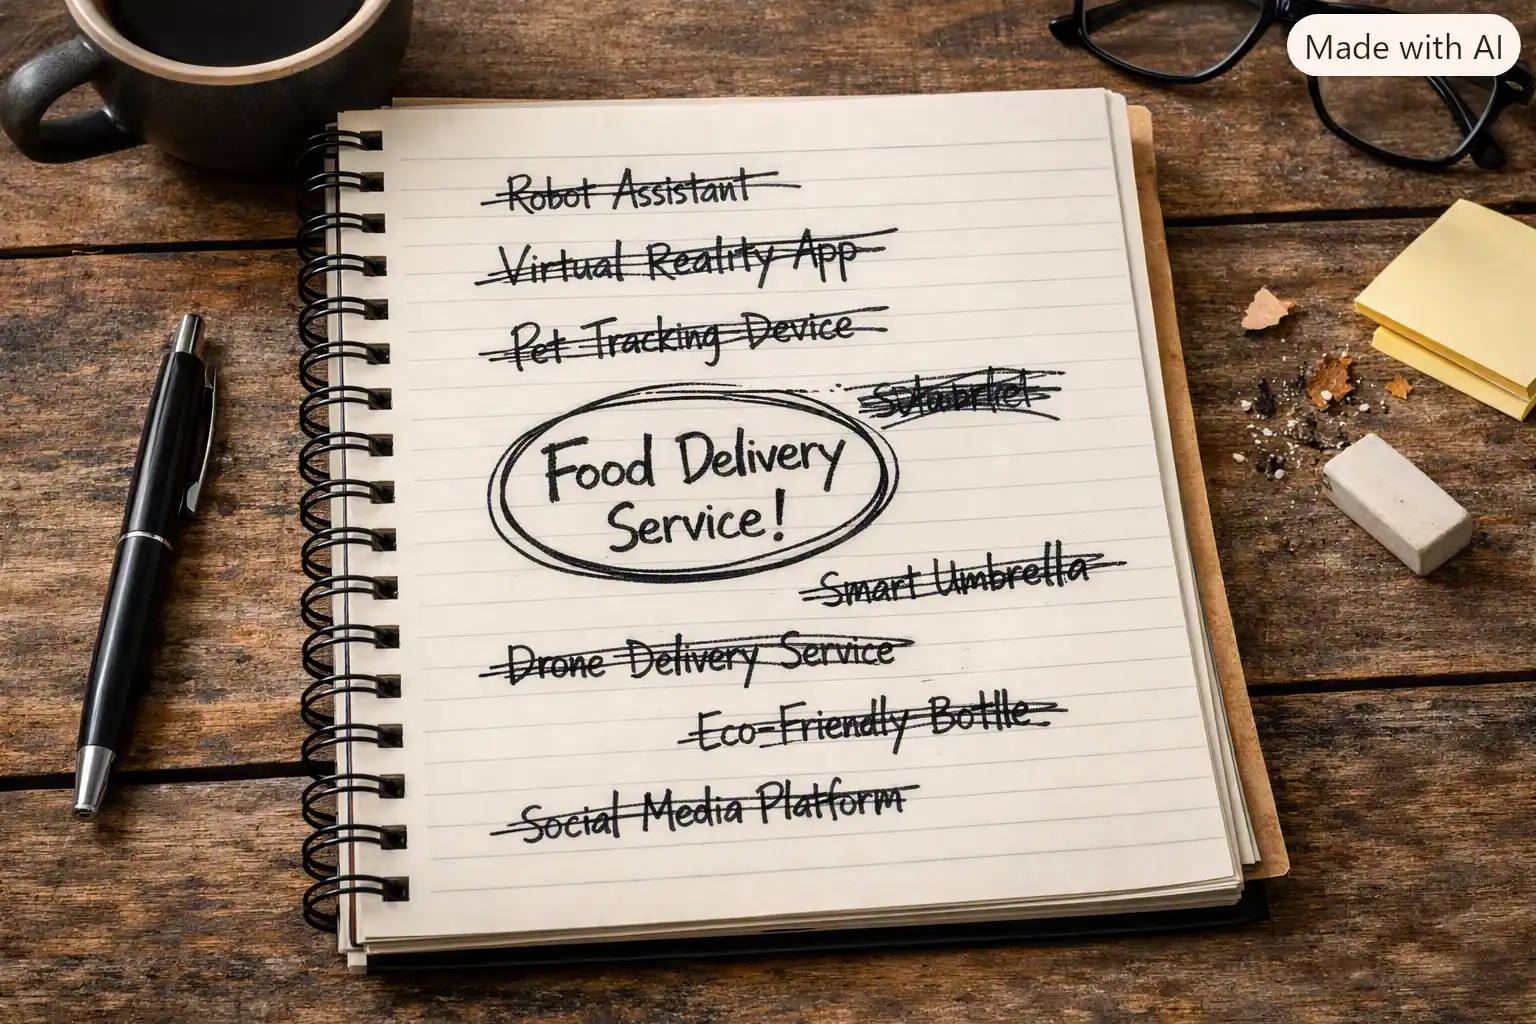 Made with AI
Robot Assistant
Virtual Reality App
Pet Tracking Device
Food Delivery
Service!
Smart Umbrella
Drone Delivery Service
Eco-Friendly Bottle
Social Media Platform